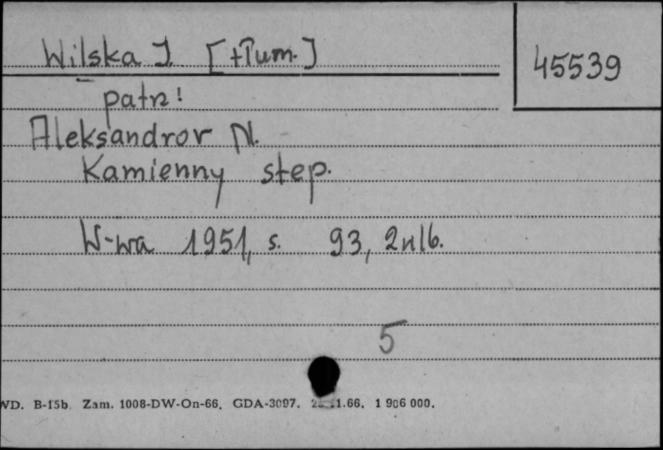 Wilska J. [tłum.]
45539
patrz!
Aleksandrov N.
Kamienny step.
W-wa 1951, s. 93, 2nlb.
5
WD. B-15b. Zam. 1008-DW-On-66. GDA-3097. 1.66. 1 906 000.